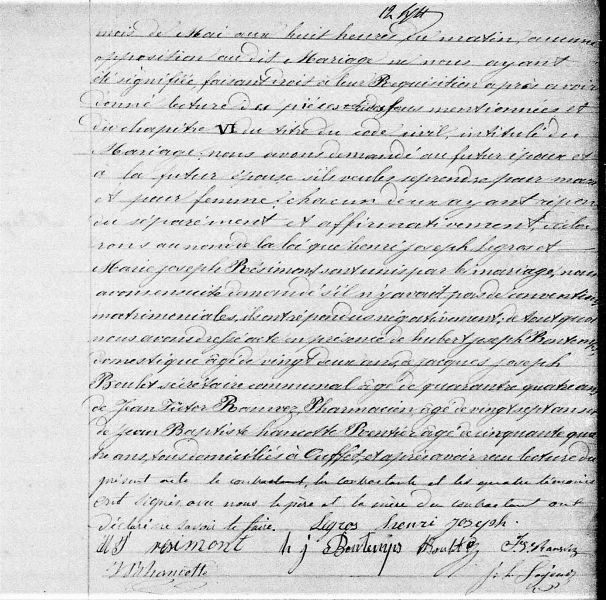 mois de Mai aux huit heures du matin, aucune
opposition au dit Mariage ne nous ayant
été signifiée, faisant droit à leur Requisition après avoir
donné lecture des pièces mentionnées et
du chapitre VI du titre du code civil, intitulé du
Mariage, nous avons demandé au futur époux et
a la future épouse s'ils veules se prendre pour mari
et pour femme, chacun deux ayant répon
du séparément et affirmativement, décla
rons au nom de la loi que henri joseph Legros et
Marie joseph Résimont sont unis par le mariage, nous
avons ensuite demandé s'il n'y avait pas de convention
matrimoniales, ils ont répondus négativement; de tout quoi
nous avons dressé acte en présence de hubert joseph Bontemps
domestique agé de vingt deux ans, de jacques joseph
Boulet secrétaire communal agé de quarante quatre ans
de Jean Victor Pharmacien agé de vingt sept ans et
de Jean Baptiste hancotte Rentier agé de cinquante qua
tre ans, tous domiciliés à Ouffet, et après avoir reçu lecture du
présent acte le contractant, la contractante et les quatre témoins
ont signés avec nous le père et la mère du contractant ont
déclaré ne savoir le faire. Legros henri joseph.
M J resimont h j Bontemps Boulet
hancotte